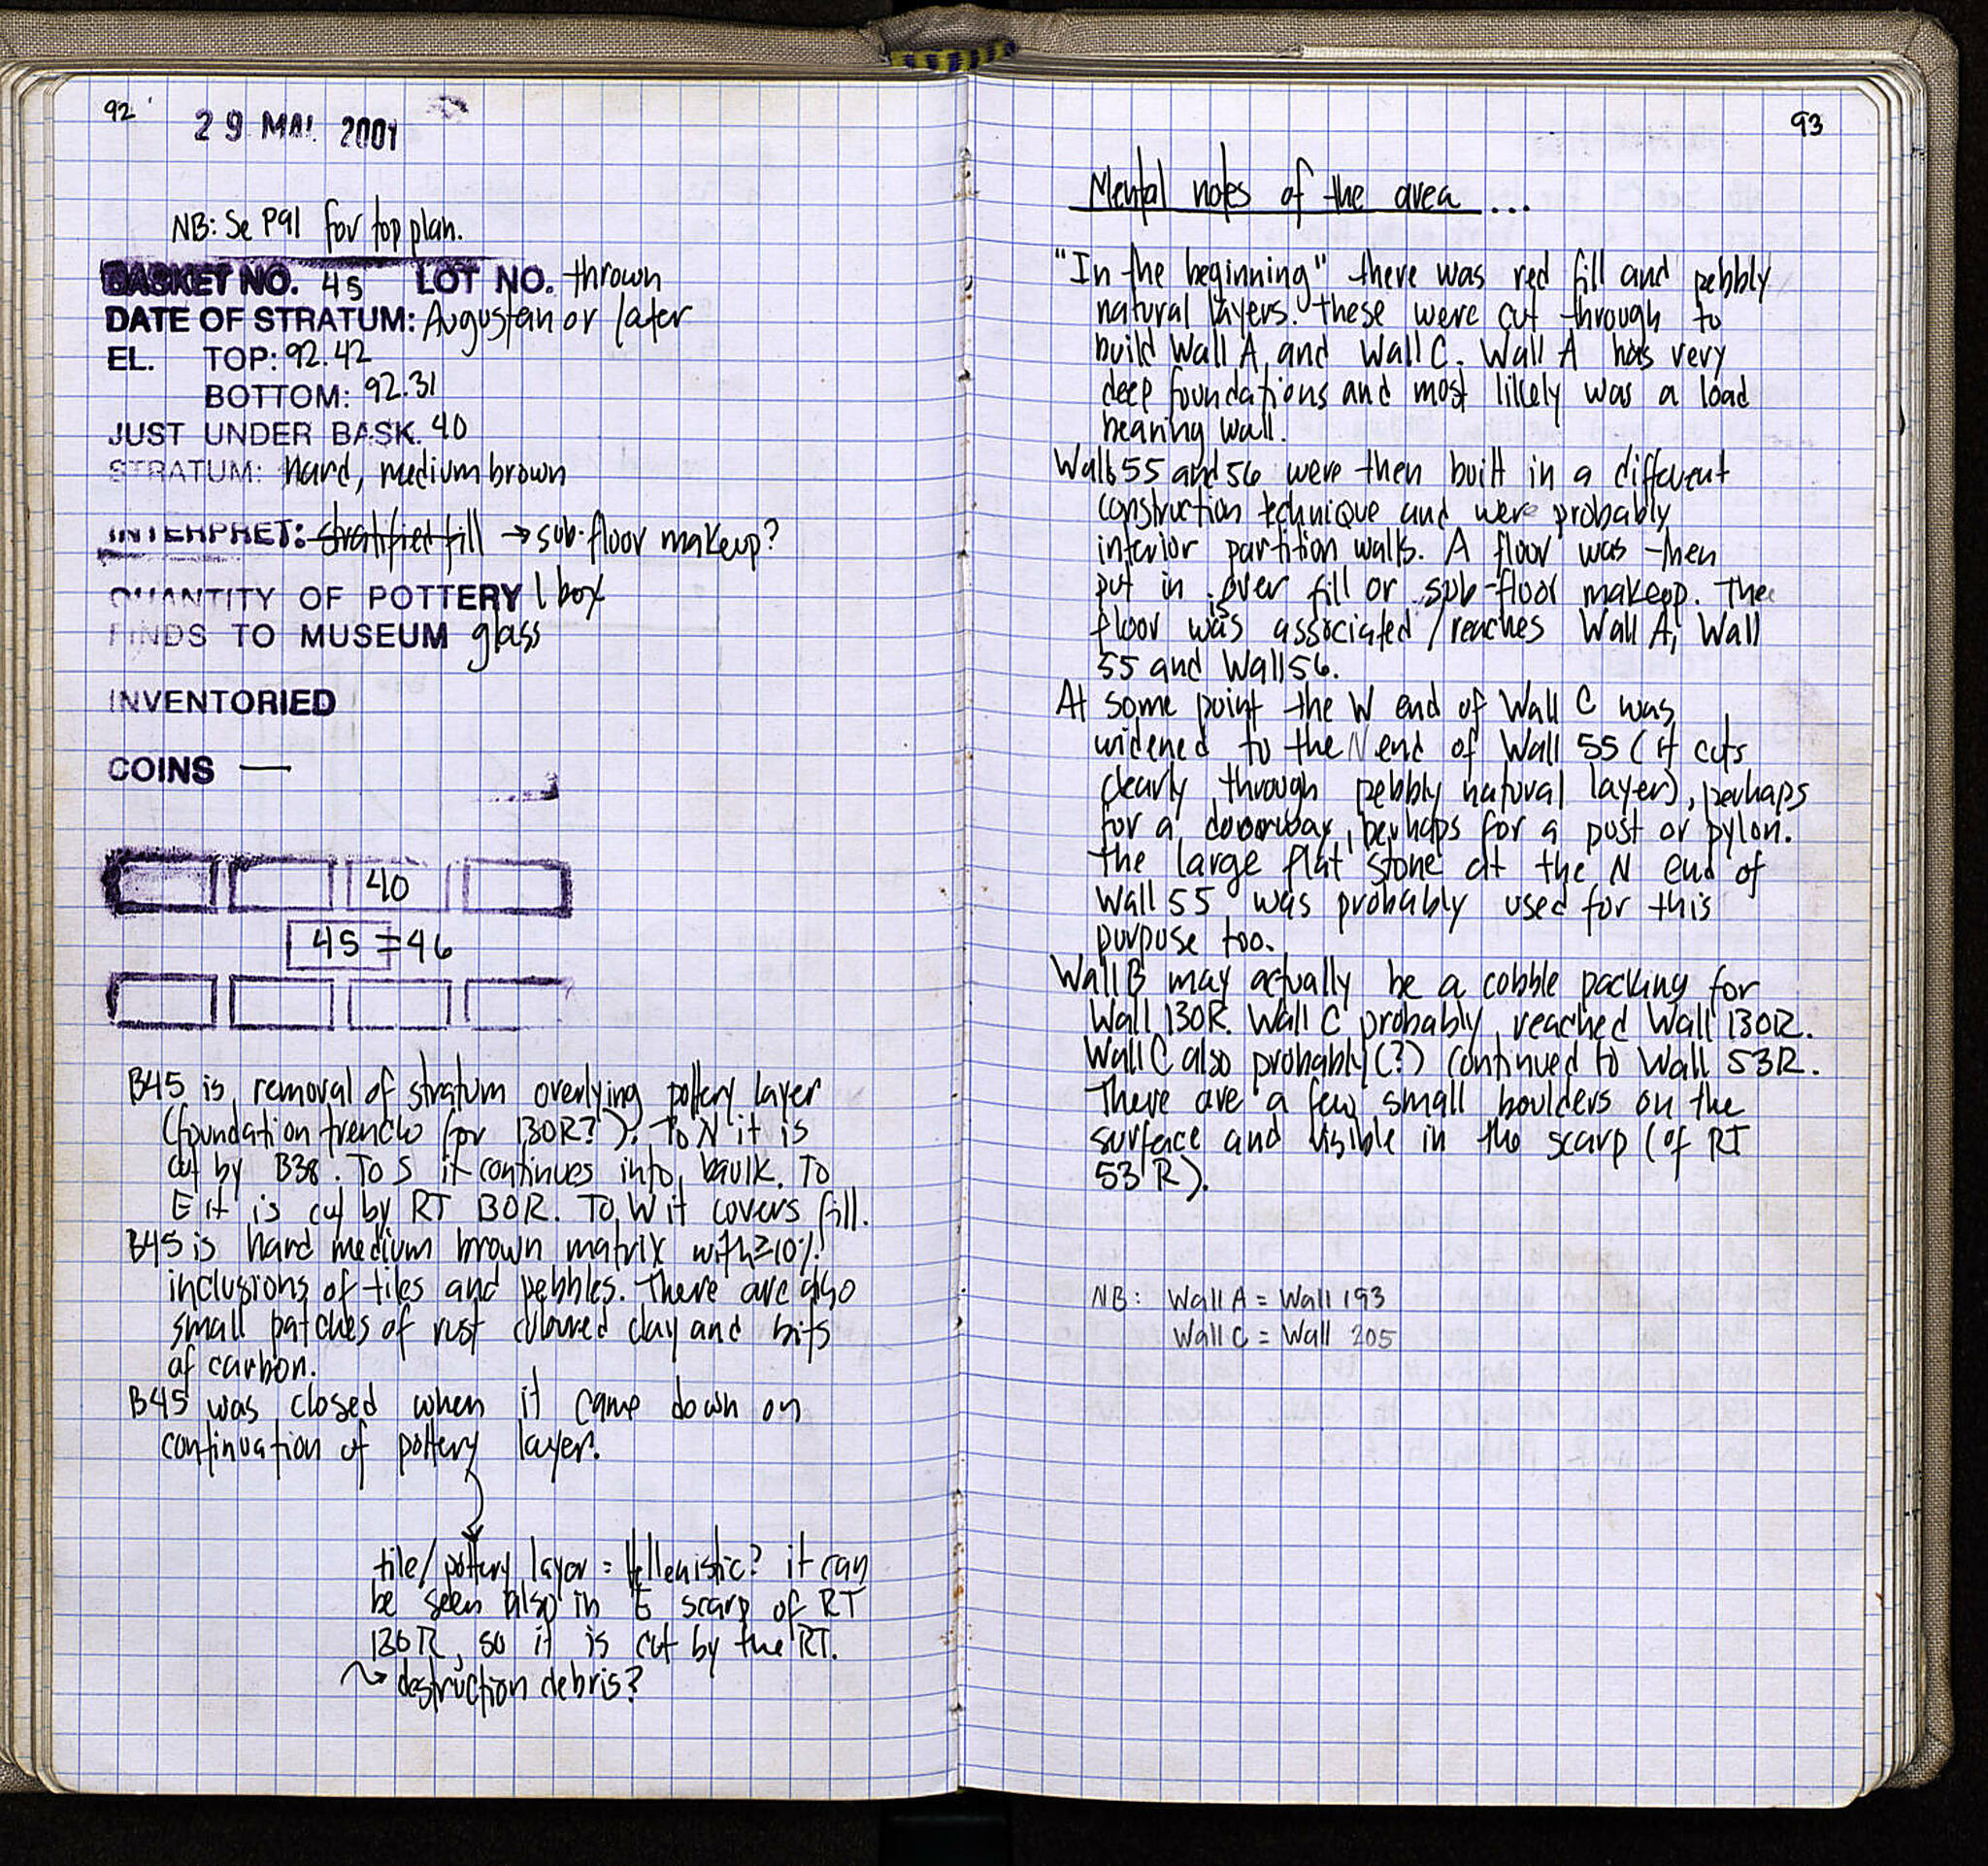 92
29 MAI 2001
NB: Se P91 for top plan.
BASKET NO. 45 LOT NO. thrown
DATE OF STRATUM: Augustan or later
EL. TOP: 92.42
BOTTOM: 92.31
JUST UNDER BASK. 40
STRATUM: hard, medium brown
INTERPRET: stratified fill → sub-floor makeup?
QUANTITY OF POTTERY 1 box
FINDS TO MUSEUM glass
INVENTORIED
COINS —
40
45 = 46
B45 is removal of stratum overlying pottery layer
(foundation trench for 130R?). To N it is
cut by B38. To S it continues into baulk. To
E it is cut by RT 130R. To W it covers fill.
B45 is hard medium brown matrix with ≥10%
inclusions of tiles and pebbles. There are also
small patches of rust coloured clay and bits
of carbon.
B45 was closed when it came down on
continuation of pottery layer.
tile/pottery layer = Hellenistic? it can
be seen also in E scarp of RT
130R, so it is cut by the RT.
destruction debris?
93
Mental notes of the area ...
"In the beginning" there was red fill and pebbly
natural layers. These were cut through to
build Wall A and Wall C. Wall A has very
deep foundations and most likely was a load
bearing wall.
Walls 55 and 56 were then built in a different
construction technique and were probably
interior partition walls. A floor was then
put in over fill or sub-floor makeup. The
floor was is associated/reaches Wall A, Wall
55 and Wall 56.
At some point the W end of Wall C was
widened to the N end of Wall 55 (it cuts
clearly through pebbly natural layer), perhaps
for a doorway, perhaps for a post or pylon.
The large flat stone at the N end of
Wall 55 was probably used for this
purpose too.
Wall B may actually be a cobble packing for
Wall 130R. Wall C probably reached Wall 130R.
Wall C also probably (?) continued to Wall 53R.
There are a few small boulders on the
surface and visible in the scarp (of RT
53R).
NB: Wall A = Wall 193
Wall C = Wall 205